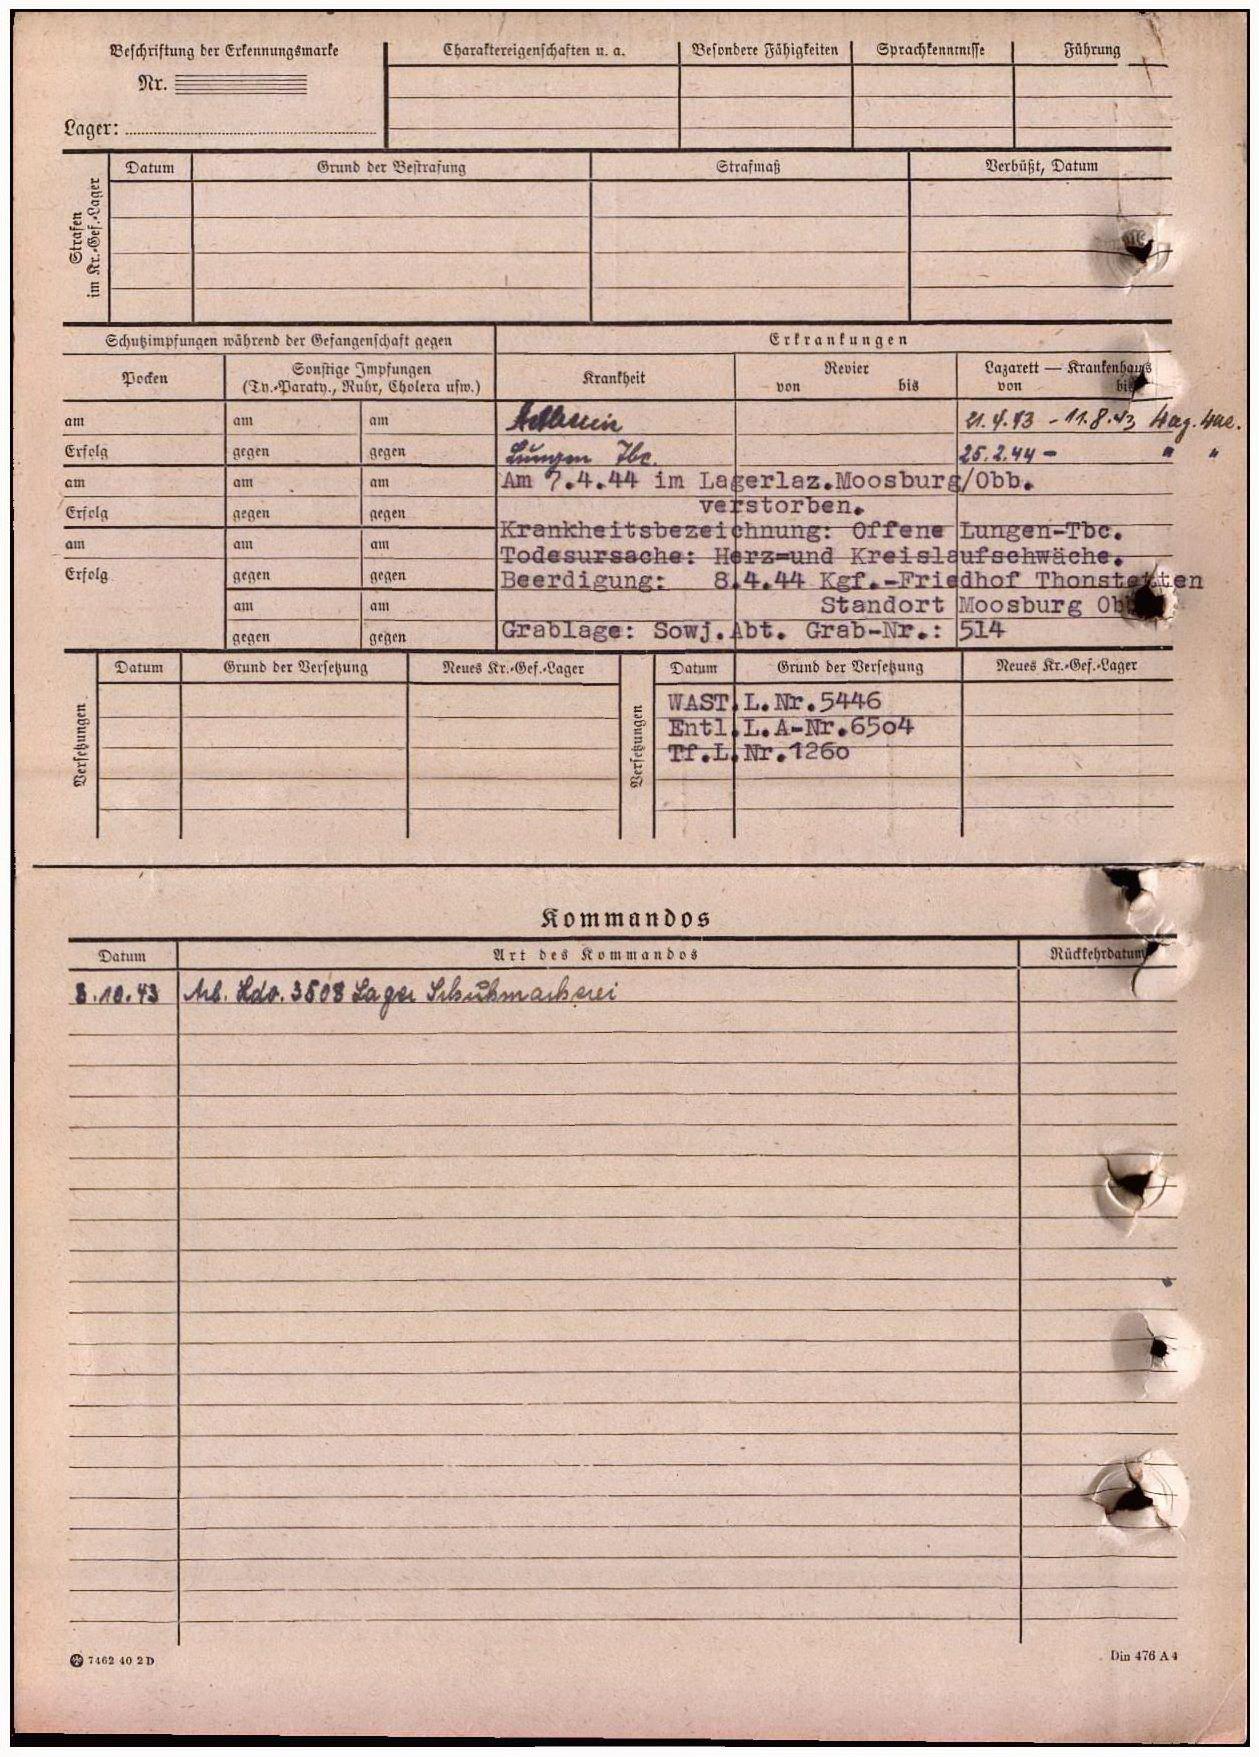 Beschriftung der Erkennungsmarke
Nr.
Lager:
Charaktereigenschaften u. a.
Besondere Fähigkeiten
Sprachkenntnisse
Führung
Strafen im Kr.-Gef.-Lager
Datum
Grund der Bestrafung
Strafmaß
Verbüßt, Datum
Schutzimpfungen während der Gefangenschaft gegen
Erkrankungen
Pocken
Sonstige Impfungen
(Ty.-Paraty., Ruhr, Cholera usw.)
Krankheit
Revier
von bis
Lazarett — Krankenhaus
von bis
am am am
21.4.43 - 11.8.43
Erfolg gegen gegen
Lungen Tbc. 25.2.44 - " "
am am am
Am 7.4.44 im Lagerlaz.Moosburg/Obb.
verstorben.
Erfolg gegen gegen
Krankheitsbezeichnung: Offene Lungen-Tbc.
am am am
Todesursache: Herz=und Kreislaufschwäche.
Erfolg gegen gegen
Beerdigung: 8.4.44 Kgf.-Friedhof Thonstetten
am am
Standort Moosburg Obb
gegen gegen
Grablage: Sowj.Abt. Grab-Nr.: 514
Versetzungen
Datum
Grund der Versetzung
Neues Kr.-Gef.-Lager
Versetzungen
Datum
Grund der Versetzung
Neues Kr.-Gef.-Lager
WAST.L.Nr.5446
Entl.L.A-Nr.6504
Tf.L.Nr.1260
Kommandos
Datum
Art des Kommandos
Rückkehrdatum
8.10.43 Arb. Kdo. 3508 Lager Schuhmacherei
7462 40 2 D
Din 476 A 4